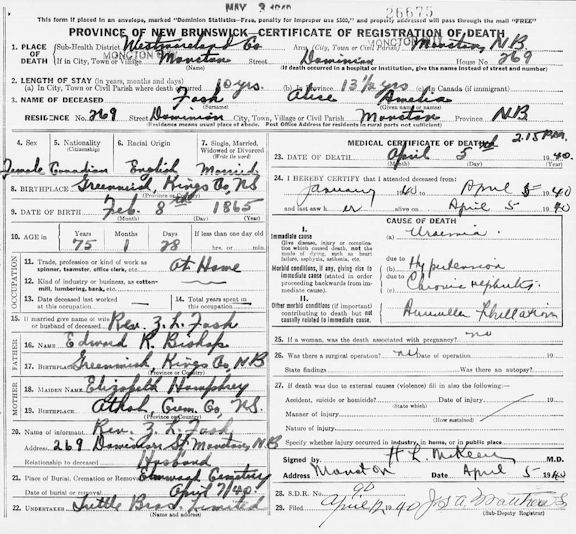 MAY 3 1940
26675
This form if placed in an envelope, marked "Dominion Statistics—Free, penalty for improper use $300," and properly addressed will pass through the mail "FREE"
PROVINCE OF NEW BRUNSWICK—CERTIFICATE OF REGISTRATION OF DEATH
1. PLACE OF DEATH
Sub-Health District Westmoreland Co
Area (City, Town or Civil Parish) Moncton, N.B
MONCTON
If in City, Town or Village Moncton Street Dominion House No 269
(Name) (If death occurred in a hospital or institution, give the name instead of street and number)
2. LENGTH OF STAY (in years, months and days)
(a) In City, Town or Civil Parish where death occurred 10 yrs. (b) In Province 13 1/2 yrs (c) In Canada (if immigrant)
3. NAME OF DECEASED Fash Alice Amelia
(Surname)
RESIDENCE No. 269 Street Dominion City, Town, Village or Civil Parish Moncton Province N.B
(Residence means usual place of abode. Post Office Address for residents in rural parts not sufficient)
4. Sex 5. Nationality (Citizenship) 6. Racial Origin 7. Single, Married, Widowed or Divorced (Write the word)
Female Canadian English Married
8. BIRTHPLACE Greenwich, Kings Co, N.S
(Province or Country)
9. DATE OF BIRTH Feb. 8th 1865
(Month) (Day) (Year)
10. AGE in Years Months Days If less than one day
75 1 28 hrs. or min.
OCCUPATION
11. Trade, profession or kind of work as spinner, teamster, office clerk, etc. At Home
12. Kind of industry or business, as cotton-mill, lumbering, bank, etc.
13. Date deceased last worked at this occupation
14. Total years spent in this occupation
15. If married give name of wife or husband of deceased Rev. Z. L. Fash
FATHER
16. NAME Edward R. Bishop
17. BIRTHPLACE Greenwich, Kings Co, N.B
(Province or Country)
MOTHER
18. MAIDEN NAME Elizabeth Humphrey
19. BIRTHPLACE Athol, Cum. Co, N.S.
(Province or Country)
20. Name of informant Rev. Z. L. Fash
Address 269 Dominion St Moncton, N.B
Relationship to deceased Husband
21. Place of Burial, Cremation or Removal Elmwood Cemetery
Date of burial or removal April 7/40.
22. UNDERTAKER Tuttle Bros. Limited
(Name and address)
MEDICAL CERTIFICATE OF DEATH
2.15 P.M.
23. DATE OF DEATH April 5 1940
(Month) (Day) (Year)
24. I HEREBY CERTIFY that I attended deceased from:
January 40 to April 5 1940
and last saw her alive on April 5 1940
CAUSE OF DEATH
I.
Immediate cause
Give disease, injury or complication which caused death, not the mode of dying, such as heart failure, asphyxia, asthenia, etc.
(a) Uraemia
Morbid conditions, if any, giving rise to immediate cause (stated in order proceeding backwards from immediate cause).
(b) Hypertension
(c) Chronic nephritis
II.
Other morbid conditions (if important) contributing to death but not causally related to immediate cause.
25. If a woman, was the death associated with pregnancy? no
26. Was there a surgical operation? no Date of operation
State findings Was there an autopsy?
27. If death was due to external causes (violence) fill in also the following:
Accident, suicide or homicide? Date of injury
(State which)
Manner of injury
Nature of injury
Specify whether injury occurred in industry, in home, or in public place
Signed by H L McKeen M.D.
Address Moncton Date April 5 1940
28. S.D.R. No. 90
29. Filed April 12 1940
(Sub-Deputy Registrar)